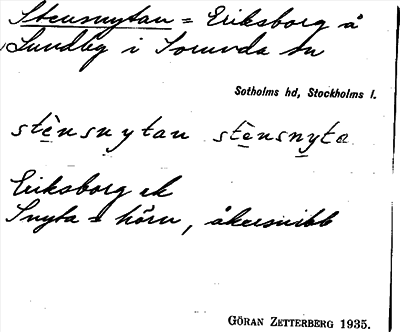 Stensnytan = Eriksborg å
Lundby i Sorunda sn
Sotholms hd, Stockholms l.
stènsnytan stènsnyta
Eriksborg ek
Snyta = hörn, åkersnibb
GÖRAN ZETTERBERG 1935.